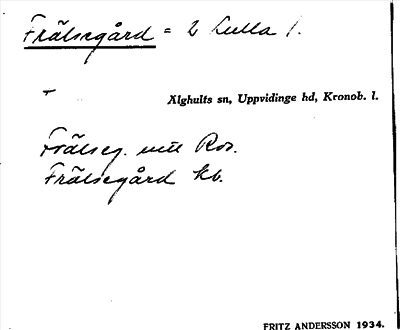 Frälsegård = 2 Lulla 1.
Älghults sn, Uppvidinge hd, Kronob. l.
Frälseg. utt Ros.
Frälsegård kb.
FRITZ ANDERSSON 1934.